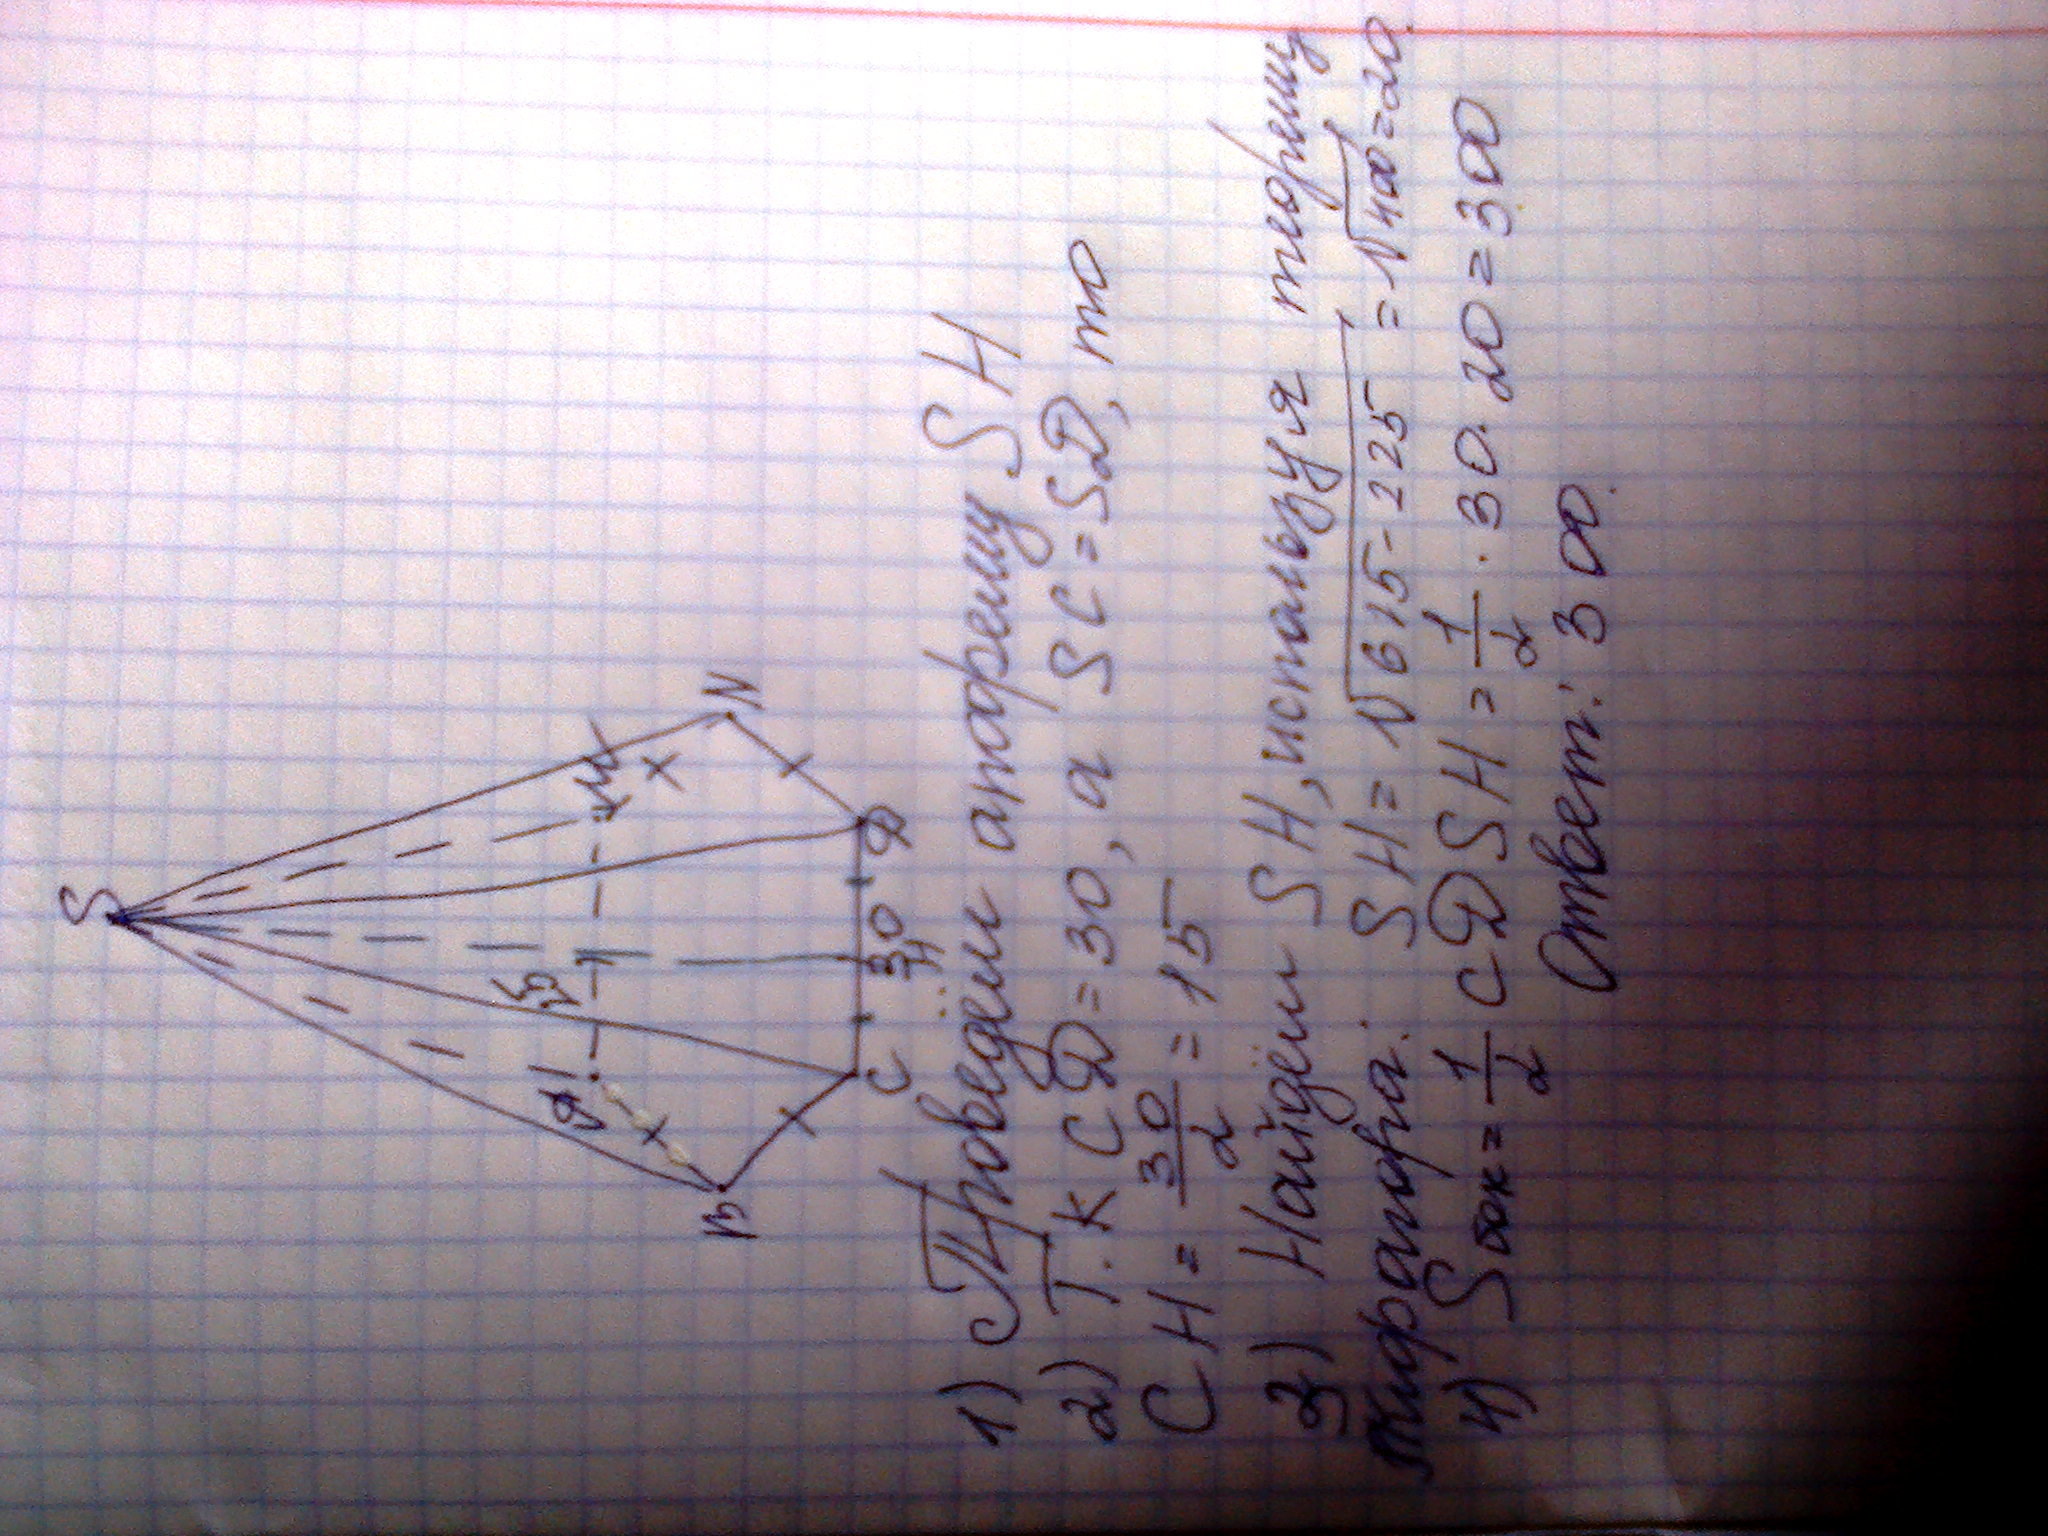 S
25
А
М
В
N
С
30
Н
D
1) Проведём апофему SH
2) Т.к CD=30, а SC=SD, то
CH=30/2=15
3) Найдём SH, используя теорему
Пифагора. SH=√615-225=√400=20.
4) Sбок=1/2 CDSH=1/2·30·20=300
Ответ: 300.